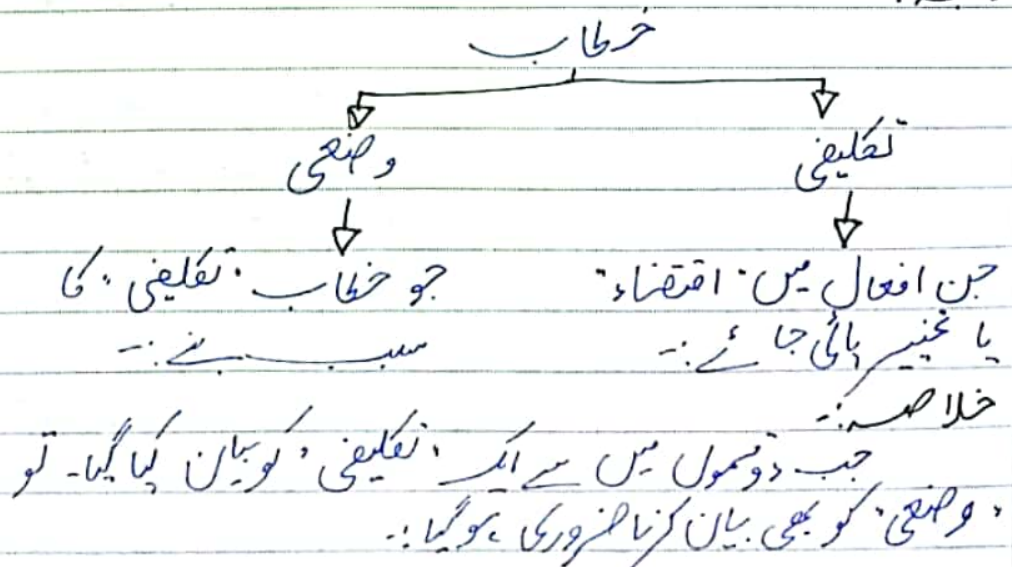 خطاب
تکلیفی
وضعی
جن افعال میں "اقتضاء"
یا تخییر پائی جائے :-
جو خطاب "تکلیفی" کا
سبب بنے :-
خلاصہ :-
جب دو قسموں میں سے ایک "تکلیفی" کو بیان کیا گیا۔ تو
"وضعی" کو بھی بیان کرنا ضروری ہو گیا :-